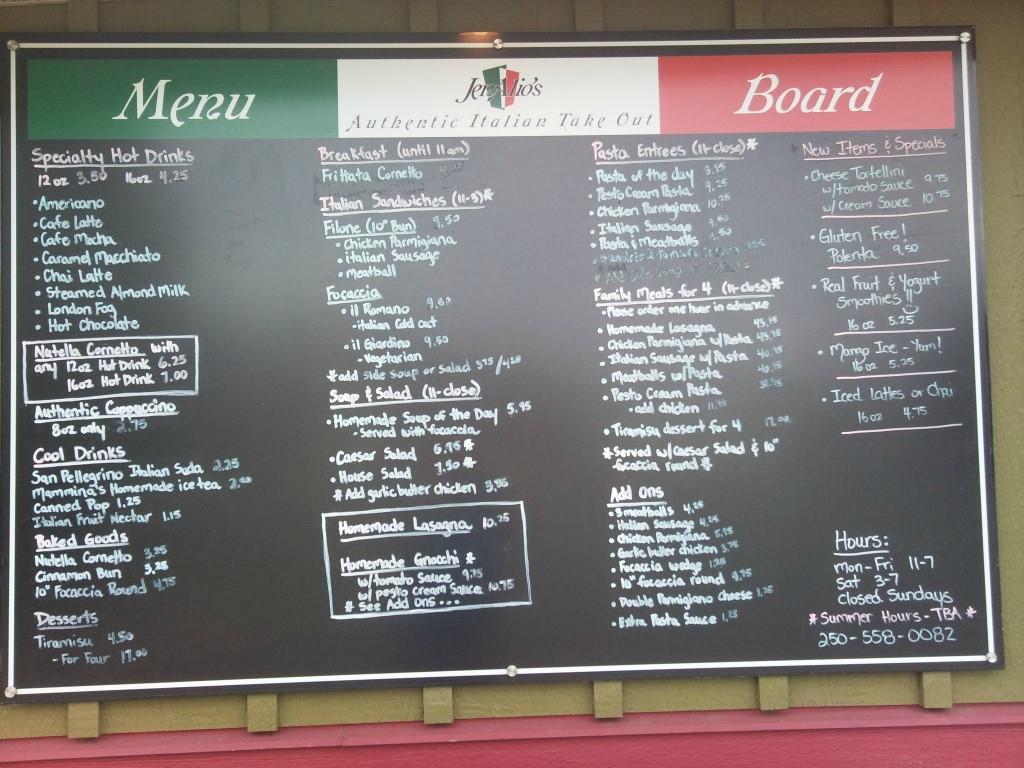 Menu
JerAlio's
Authentic Italian Take Out
Board
Specialty Hot Drinks
12oz 3.50 16oz 4.25
• Americano
• Cafe Latte
• Cafe Mocha
• Caramel Macchiato
• Chai Latte
• Steamed Almond Milk
• London Fog
• Hot Chocolate
Nutella Cornetto with
any 12oz Hot Drink 6.25
16oz Hot Drink 7.00
Authentic Cappuccino
8oz only 2.75
Cool Drinks
San Pellegrino Italian Soda 2.25
Mammina's Homemade ice tea
Canned Pop 1.25
Italian Fruit Nectar 1.15
Baked Goods
Nutella Cornetto 3.25
Cinnamon Bun 3.25
10" Focaccia Round 4.75
Desserts
Tiramisu 4.50
- For Four 17.00
Breakfast (until 11am)
Frittata Cornetto
Italian Sandwiches (11-3)*
Filone (10" Bun) 9.50
• Chicken Parmigiana
• italian Sausage
• meatball
Focaccia
• il Romano 9.60
- italian Cold cut
• il Giardino 9.50
- Vegetarian
*add side soup or salad
Soup & Salad (11-close)
• Homemade Soup of the Day 5.95
- Served with focaccia
• Caesar Salad 6.95 *
• House Salad 7.50 *
* Add garlic butter chicken 3.95
Homemade Lasagna 10.25
Homemade Gnocchi *
w/ tomato Sauce 9.75
w/ pesto cream Sauce 10.75
* See Add Ons...
Pasta Entrees (11-close)*
• Pasta of the day
• Pesto Cream Pasta 9.25
• Chicken Parmigiana 10.25
• Italian Sausage
• Pasta & Meatballs
Family Meals for 4 (11-close)*
- Please order one hour in advance
• Homemade Lasagna
• Chicken Parmigiana w/ Pasta
• Italian Sausage w/ Pasta
• Meatballs w/ Pasta
• Pesto Cream Pasta
- add chicken
• Tiramisu dessert for 4 17.00
* Served w/ Caesar Salad & 10"
focaccia round *
Add Ons
• 3 meatballs 4.25
• italian Sausage 4.25
• Chicken Parmigiana 5.75
• Garlic butter chicken
• Focaccia wedge
• 10" focaccia round 4.75
• Double Parmigiano cheese
• Extra Pasta Sauce
New Items & Specials
• Cheese Tortellini
w/ tomato sauce 9.75
w/ Cream Sauce 10.75
• Gluten Free!
Polenta 9.50
• Real Fruit & Yogurt
Smoothies!!
16 oz 5.25
• Mango Ice - Yum!
16 oz 5.25
• Iced lattes or Chai
16 oz 4.75
Hours:
mon-Fri 11-7
Sat 3-7
closed Sundays
* Summer Hours - TBA *
250-558-0082